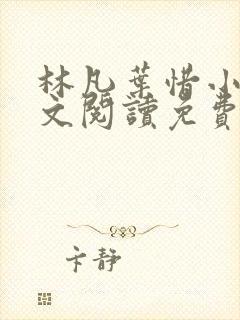 林凡葉惜小
文閱讀免費
卞靜